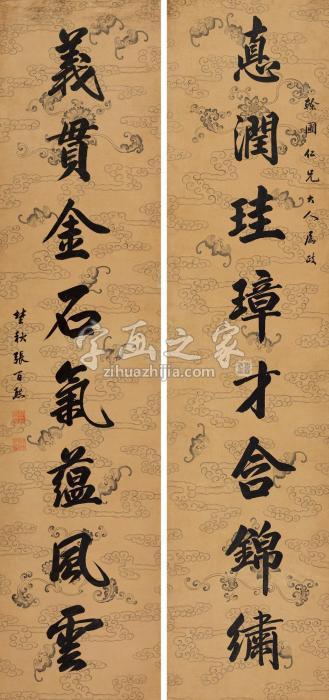 翰圃仁兄大人屬政
悳潤珪璋才含錦繡
義貫金石氣蘊風雲
埜秋張百熙
字画之家
zihuazhijia.com